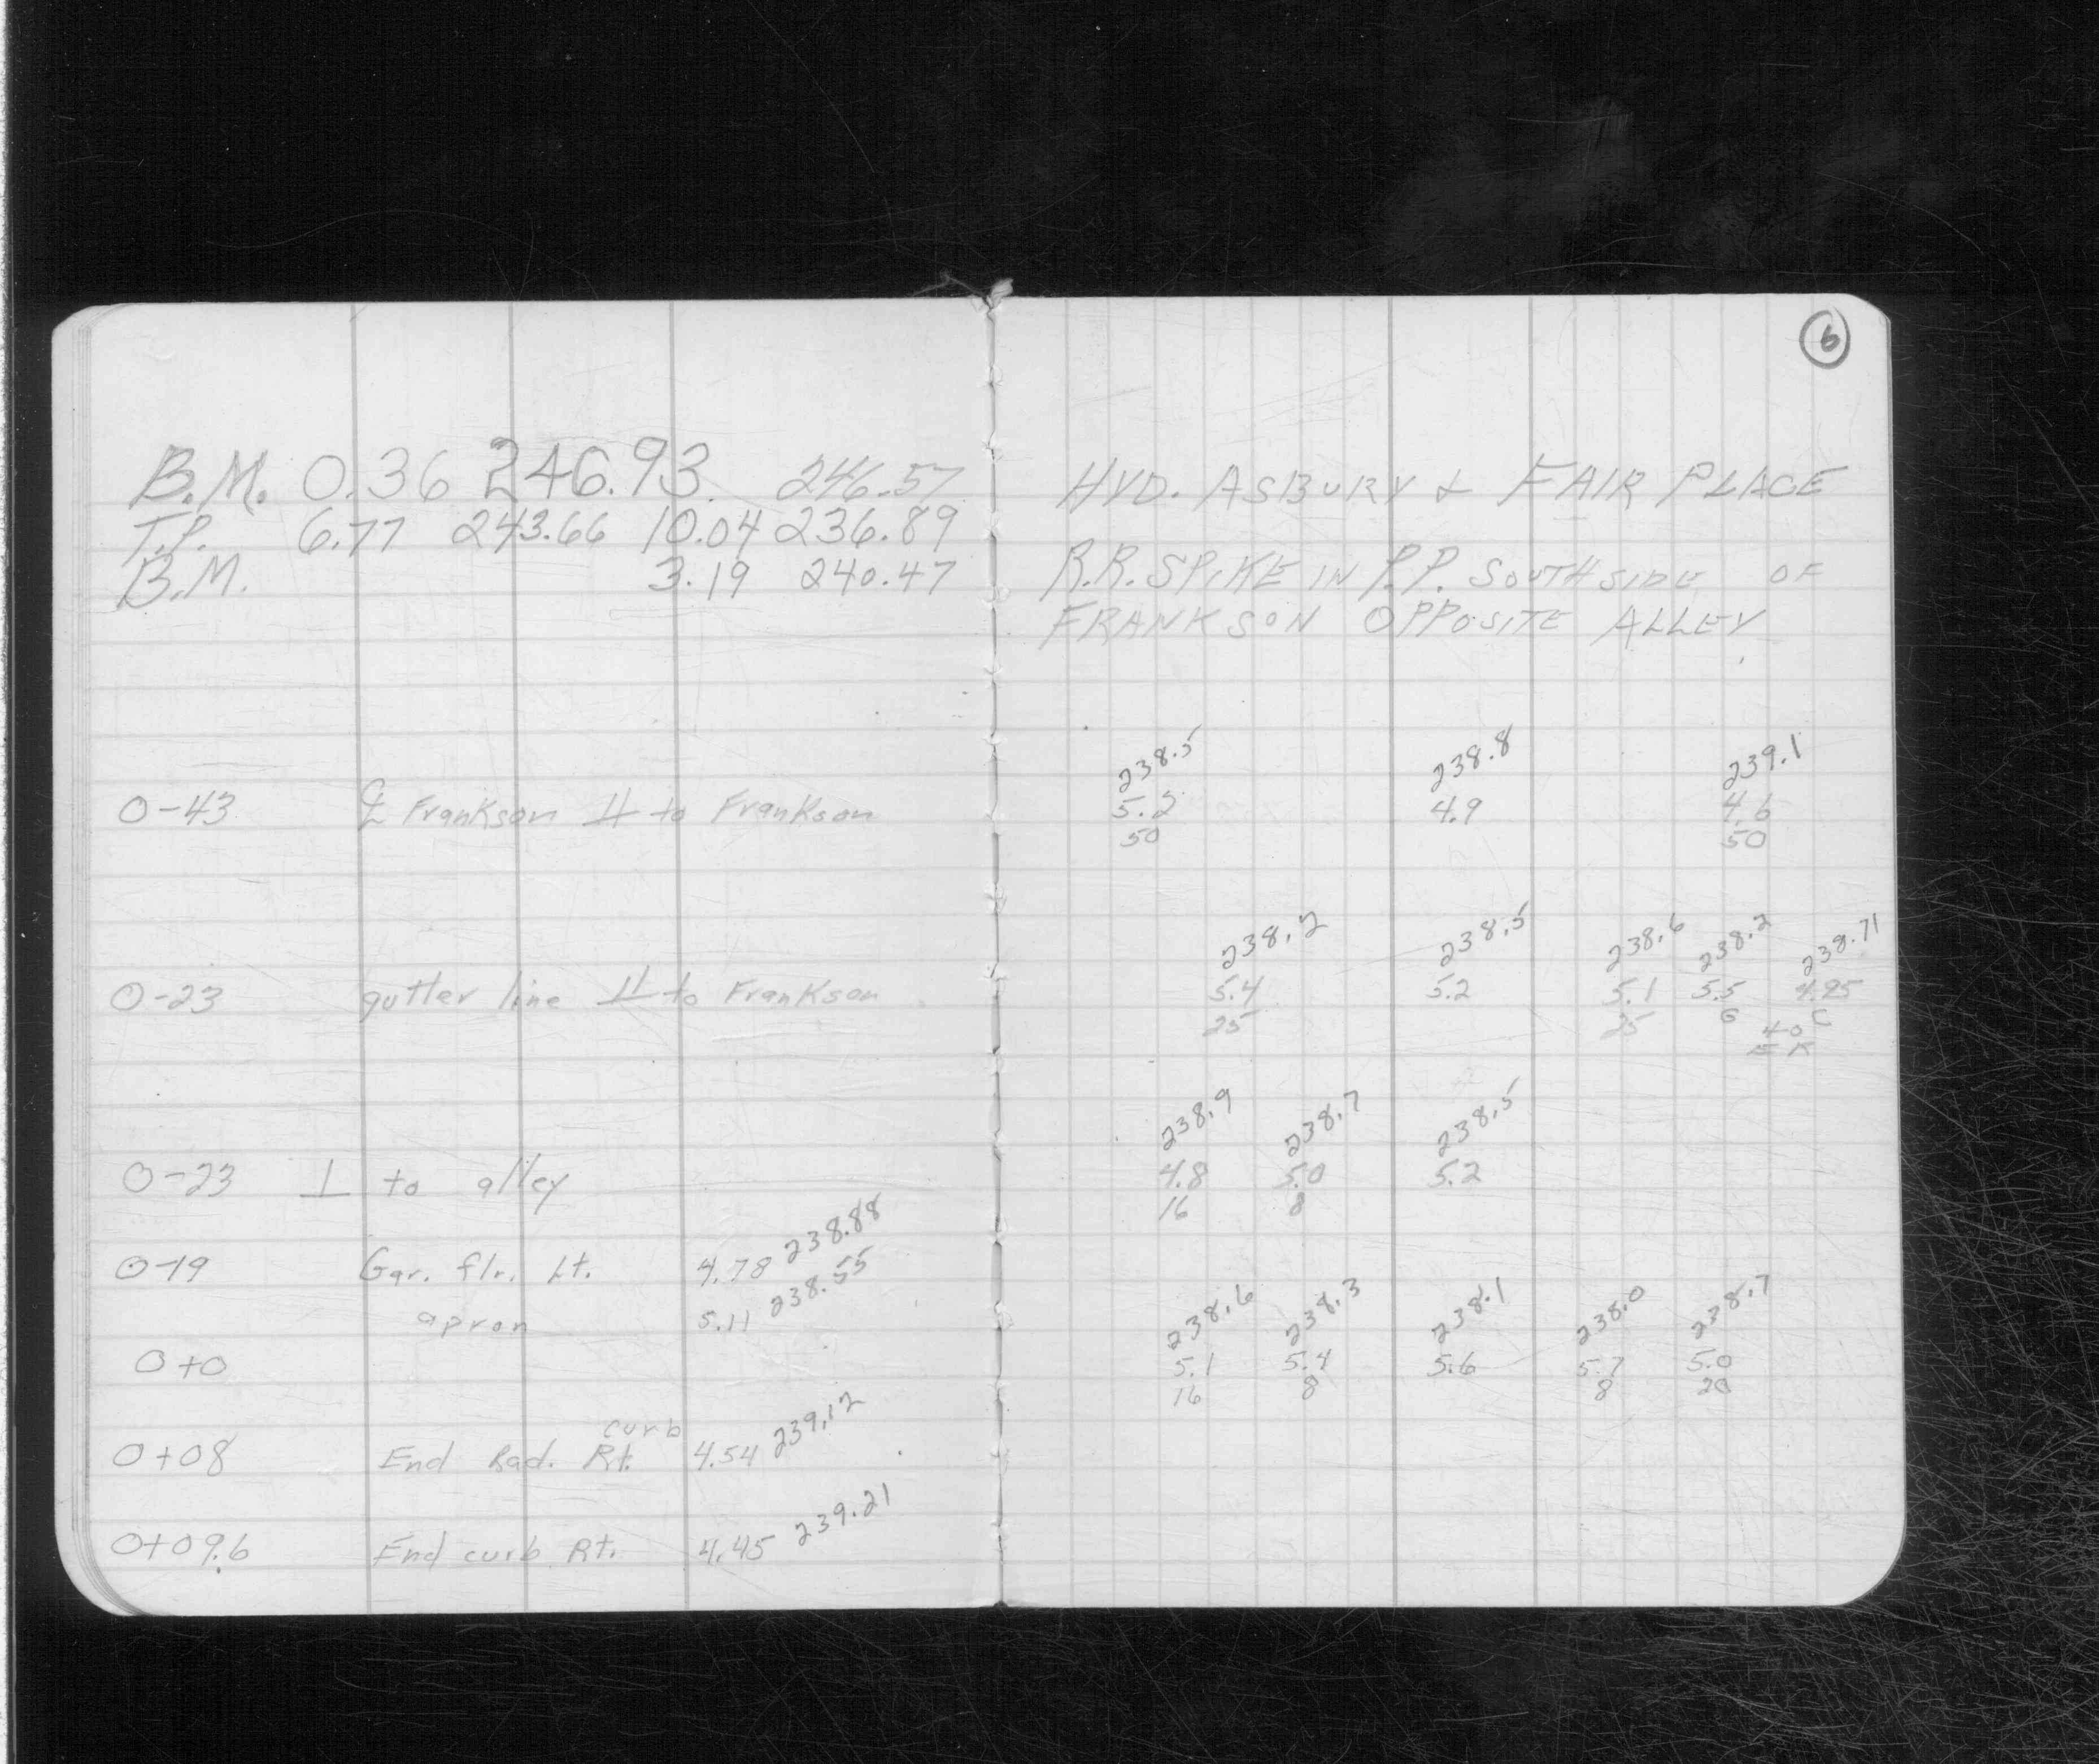 6
B.M. 0.36 246.93 246.57 HYD. ASBURY & FAIR PLACE
T.P. 6.77 243.66 10.04 236.89
B.M. 3.19 240.47 R.R. SPIKE IN P.P. SOUTH SIDE OF
FRANKSON OPPOSITE ALLEY
238.5 238.8 239.1
0-43 ℄ Frankson to Frankson 5.2 4.9 4.6
50 50
238.2 238.5 238.6 238.2 238.71
0-23 gutter line to Frankson 5.4 5.2 5.1 5.5 4.95
25 25 G C
40
238.9 238.7 238.5
0-23 ⊥ to alley 4.8 5.0 5.2
16 8
0-19 Gar. flr. Lt. 4.78 238.88
apron 5.11 238.55
238.6 238.3 238.1 238.0 238.7
0+0 5.1 5.4 5.6 5.7 5.0
16 8 8 20
curb
0+08 End Rad. Rt. 4.54 239.12
0+09.6 End curb Rt. 4.45 239.21